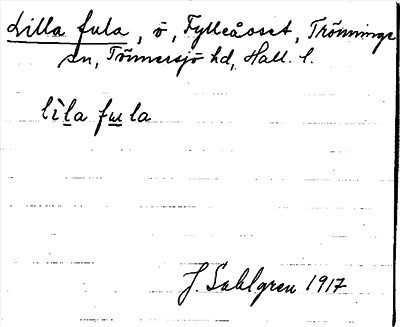 Lilla fula, ö, Fylleåoset, Trönninge
sn, Tönnersjö hd, Hall. l.
lìla fula
J. Sahlgren 1917